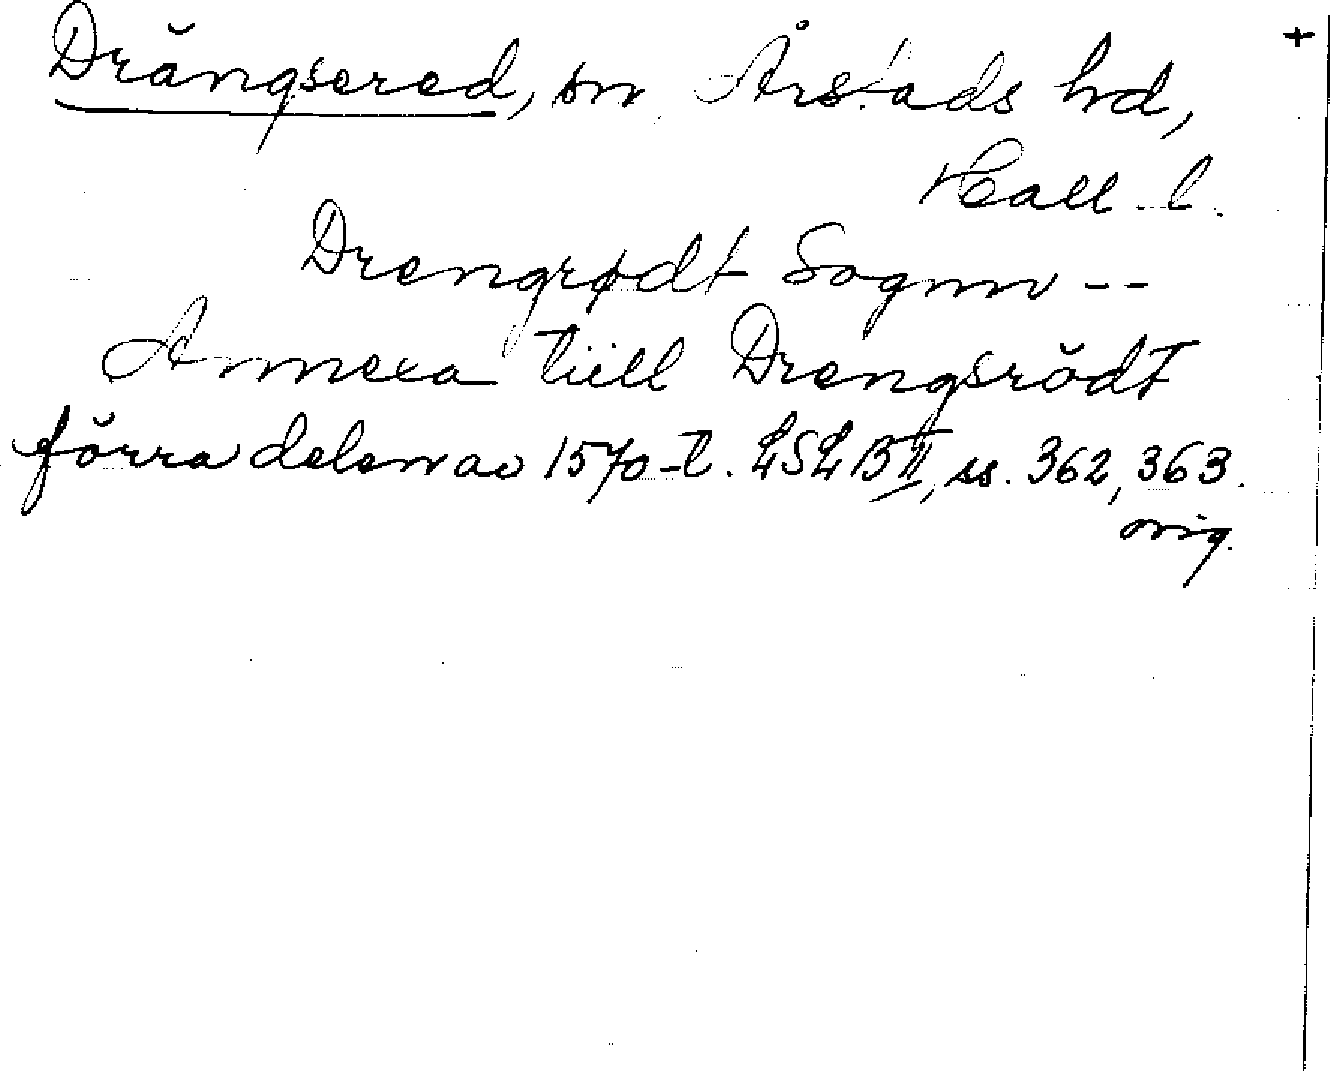 Drängsered, sn Årstads hd, +
Hall. l.
Drengrødt Sognn --
Annexa tiill Drengsrödt
förra delen av 1570-t. LSLB II, ss. 362, 363.
orig.